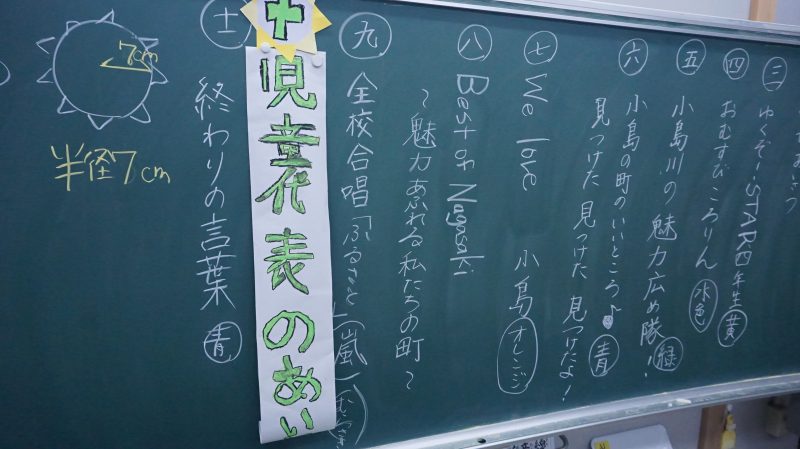 あいさつ
三 ゆくぞ!STAR四年生 黄
四 おむすびころりん 水色
五 小島川の魅力広め隊! 緑
六 小島の町のいいところ♪ 青
見つけた 見つけた 見つけたよ!
七 We love 小島 オレンジ
八 Best of Nagasaki
～魅力あふれる私たちの町～
九 全校合唱「ふるさと」(嵐)
十 児童代表のあい
十一 終わりの言葉 青
7cm
半径7cm